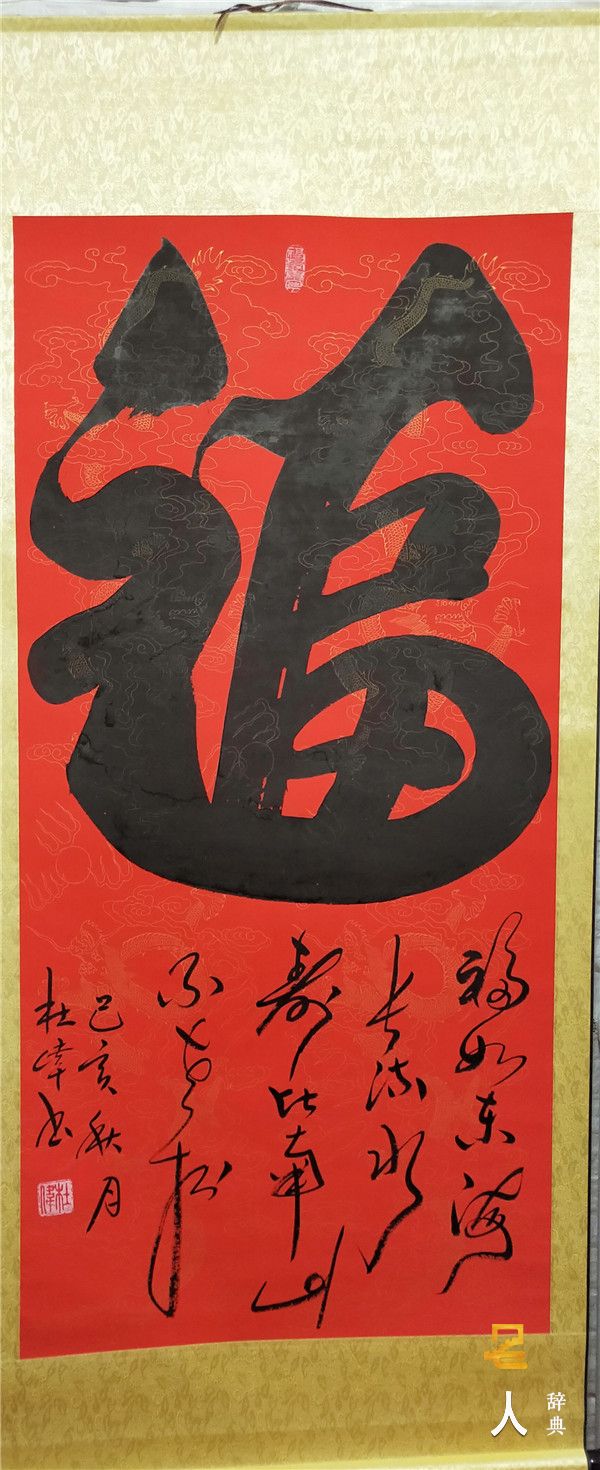 福
福如东海
长流水
寿比南山
不老松
己亥秋月
杜伟书
杜伟
名人
辞典